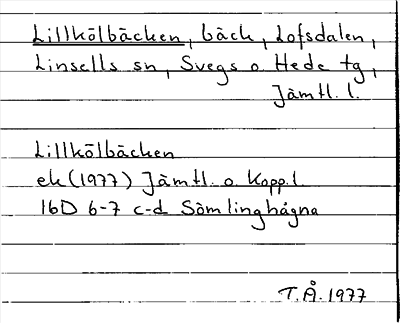 Lillkölbäcken, bäck, Lofsdalen,
Linsells sn, Svegs o Hede tg,
Jämtl. l.
Lillkölbäcken
ek (1977) Jämtl. o. Kopp.l.
16D 6-7 c-d Sömlinghågna
T.Å. 1977